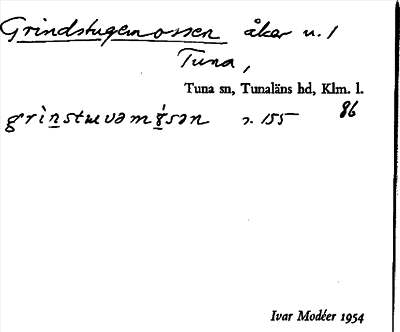 Grindstugemossen åker n. 1
Tuna,
Tuna sn, Tunaläns hd, Klm. l.
86
grìnstuvəmósən 2. 155
Ivar Modéer 1954